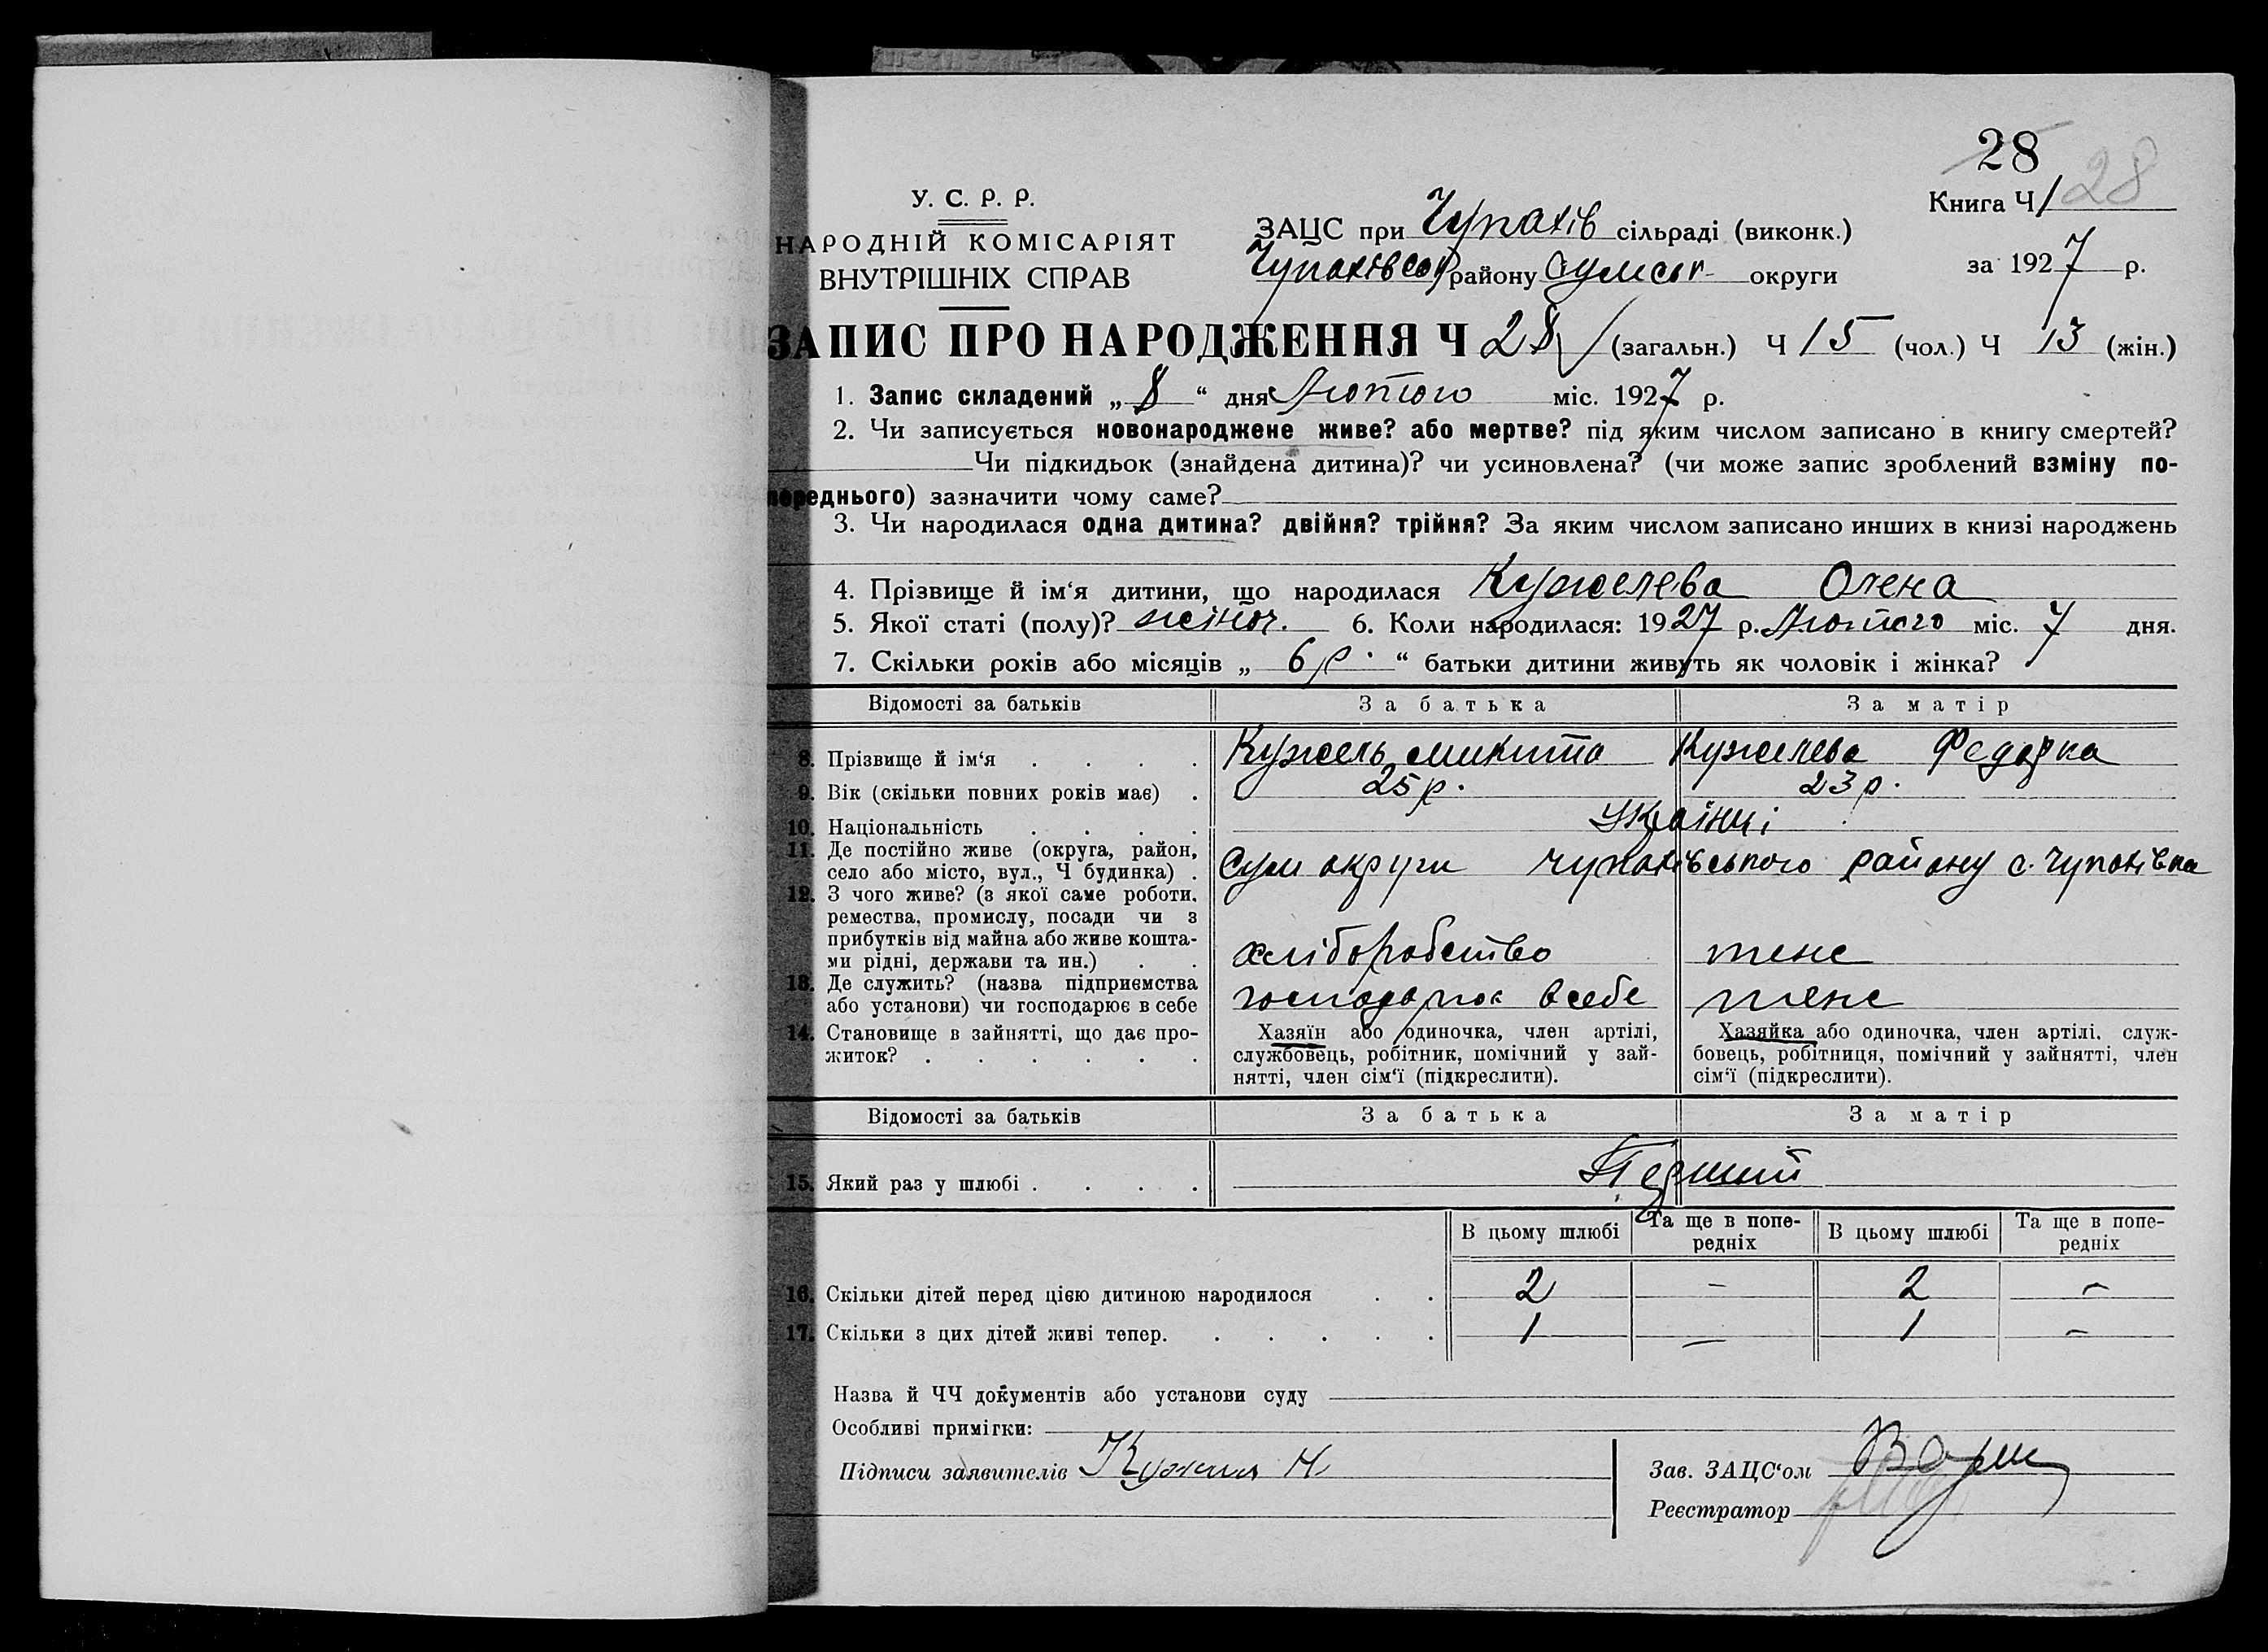 28
28
У. С. Р. Р.
НАРОДНІЙ КОМІСАРІЯТ
ВНУТРІШНІХ СПРАВ
ЗАЦС при Чупахів сільраді (виконк.)
Чупахівськ району Сумськ округи
Книга Ч 1
за 1927 р.
ЗАПИС ПРО НАРОДЖЕННЯ Ч 28 (загальн.) Ч 15 (чол.) Ч 13 (жін.)
1. Запис складений „ 8 “ дня Лютого міс. 1927 р.
2. Чи записується новонароджене живе? або мертве? під яким числом записано в книгу смертей?
Чи підкидьок (знайдена дитина)? чи усиновлена? (чи може запис зроблений взміну по-
переднього) зазначити чому саме?
3. Чи народилася одна дитина? двійня? трійня? За яким числом записано инших в книзі народжень
4. Прізвище й ім‘я дитини, що народилася Кужелева Олена
5. Якої статі (полу)? жіноч. 6. Коли народилася: 1927 р. Лютого міс. 7 дня.
7. Скільки років або місяців „ 6 р. “ батьки дитини живуть як чоловік і жінка?
Відомості за батьків За батька За матір
8. Прізвище й ім‘я . . . . Кужель Микита Кужелева Федорка
9. Вік (скільки повних років має) . 25 р. 23 р.
10. Національність . . . . Українці
11. Де постійно живе (округа, район,
село або місто, вул., Ч будинка) . Сум округи Чупахівського району с. Чупахівка
12. З чого живе? (з якої саме роботи,
ремества, промислу, посади чи з
прибутків від майна або живе кошта-
ми рідні, держави та ин.) . . хліборобство теж
13. Де служить? (назва підприємства
або установи) чи господарює в себе господарює в себе теж
14. Становище в зайнятті, що дає про-
житок? . . . . . .
Хазяїн або одиночка, член артілі,
службовець, робітник, помічний у зай-
нятті, член сім‘ї (підкреслити).
Хазяйка або одиночка, член артілі, служ-
бовець, робітниця, помічний у зайнятті, член
сім‘ї (підкреслити).
Відомості за батьків За батька За матір
15. Який раз у шлюбі . . . . Перший
В цьому шлюбі Та ще в попе-
редніх В цьому шлюбі Та ще в попе-
редніх
16. Скільки дітей перед цією дитиною народилося . . 2 – 2 –
17. Скільки з цих дітей живі тепер. . . . . . 1 – 1 –
Назва й ЧЧ документів або установи суду
Особливі примітки:
Підписи заявителів Кужель М
Зав. ЗАЦС‘ом
Реєстратор